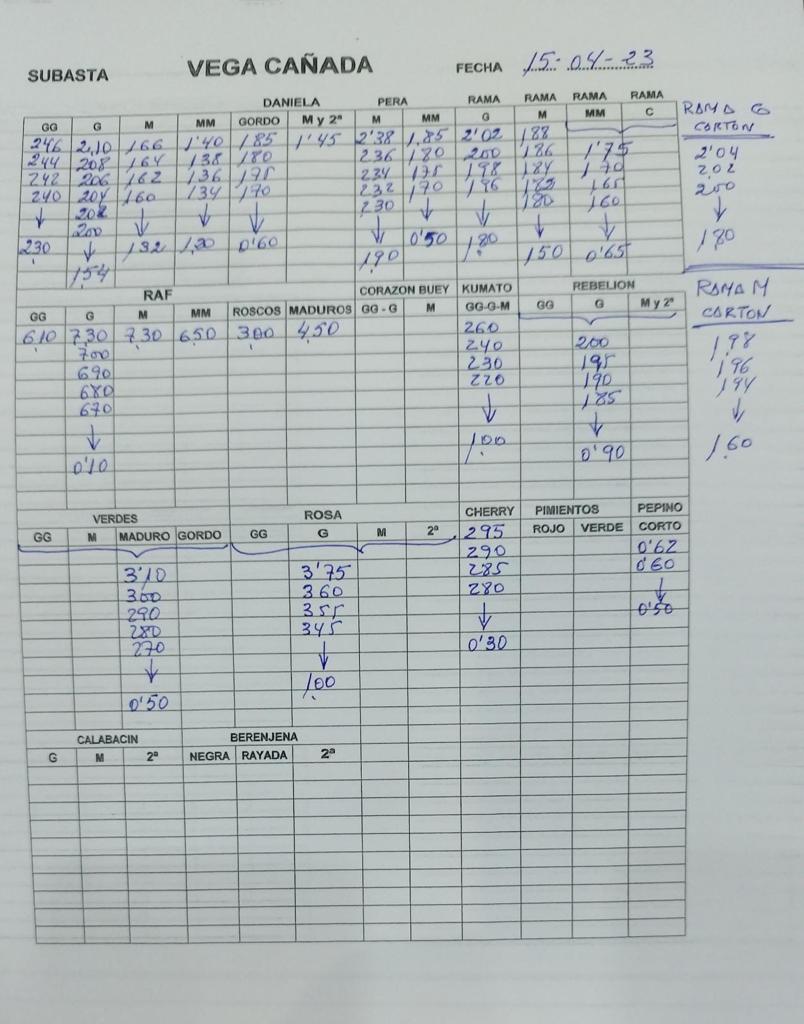 SUBASTA VEGA CAÑADA FECHA 15-04-23
DANIELA PERA RAMA RAMA RAMA RAMA RAMA G
GG G M MM GORDO M y 2ª M MM G M MM C CARTON
246 2,10 166 1'40 185 1'45 2'38 1,85 2'02 188
244 208 164 138 180 236 180 200 186 1'75 2'04
242 206 162 136 175 234 175 198 184 170 2,02
240 204 160 134 170 232 170 196 182 165 200
↓ 202 ↓ ↓ ↓ 230 ↓ ↓ 180 160 ↓
200 ↓ ↓ ↓
230 ↓ 1,32 1,20 0'60 0'50 1,80 150 0'65 1,80
1,54 1,90
RAF CORAZON BUEY KUMATO REBELION RAMA M
GG G M MM ROSCOS MADUROS GG - G M GG-G-M GG G M y 2ª CARTON
610 7,30 7,30 650 300 4,50 260
700 240 200 1,98
690 230 195 1,96
680 220 190 194
670 ↓ 185 ↓
↓ 1,00 ↓ 1,60
0'10 0'90
VERDES ROSA CHERRY PIMIENTOS PEPINO
GG M MADURO GORDO GG G M 2ª 295 ROJO VERDE CORTO
290 0'62
3'10 3'75 285 0'60
300 360 280 ↓
290 355 ↓ 0'50
280 345
270 ↓ 0'30
↓ 1,00
0'50
CALABACIN BERENJENA
G M 2ª NEGRA RAYADA 2ª